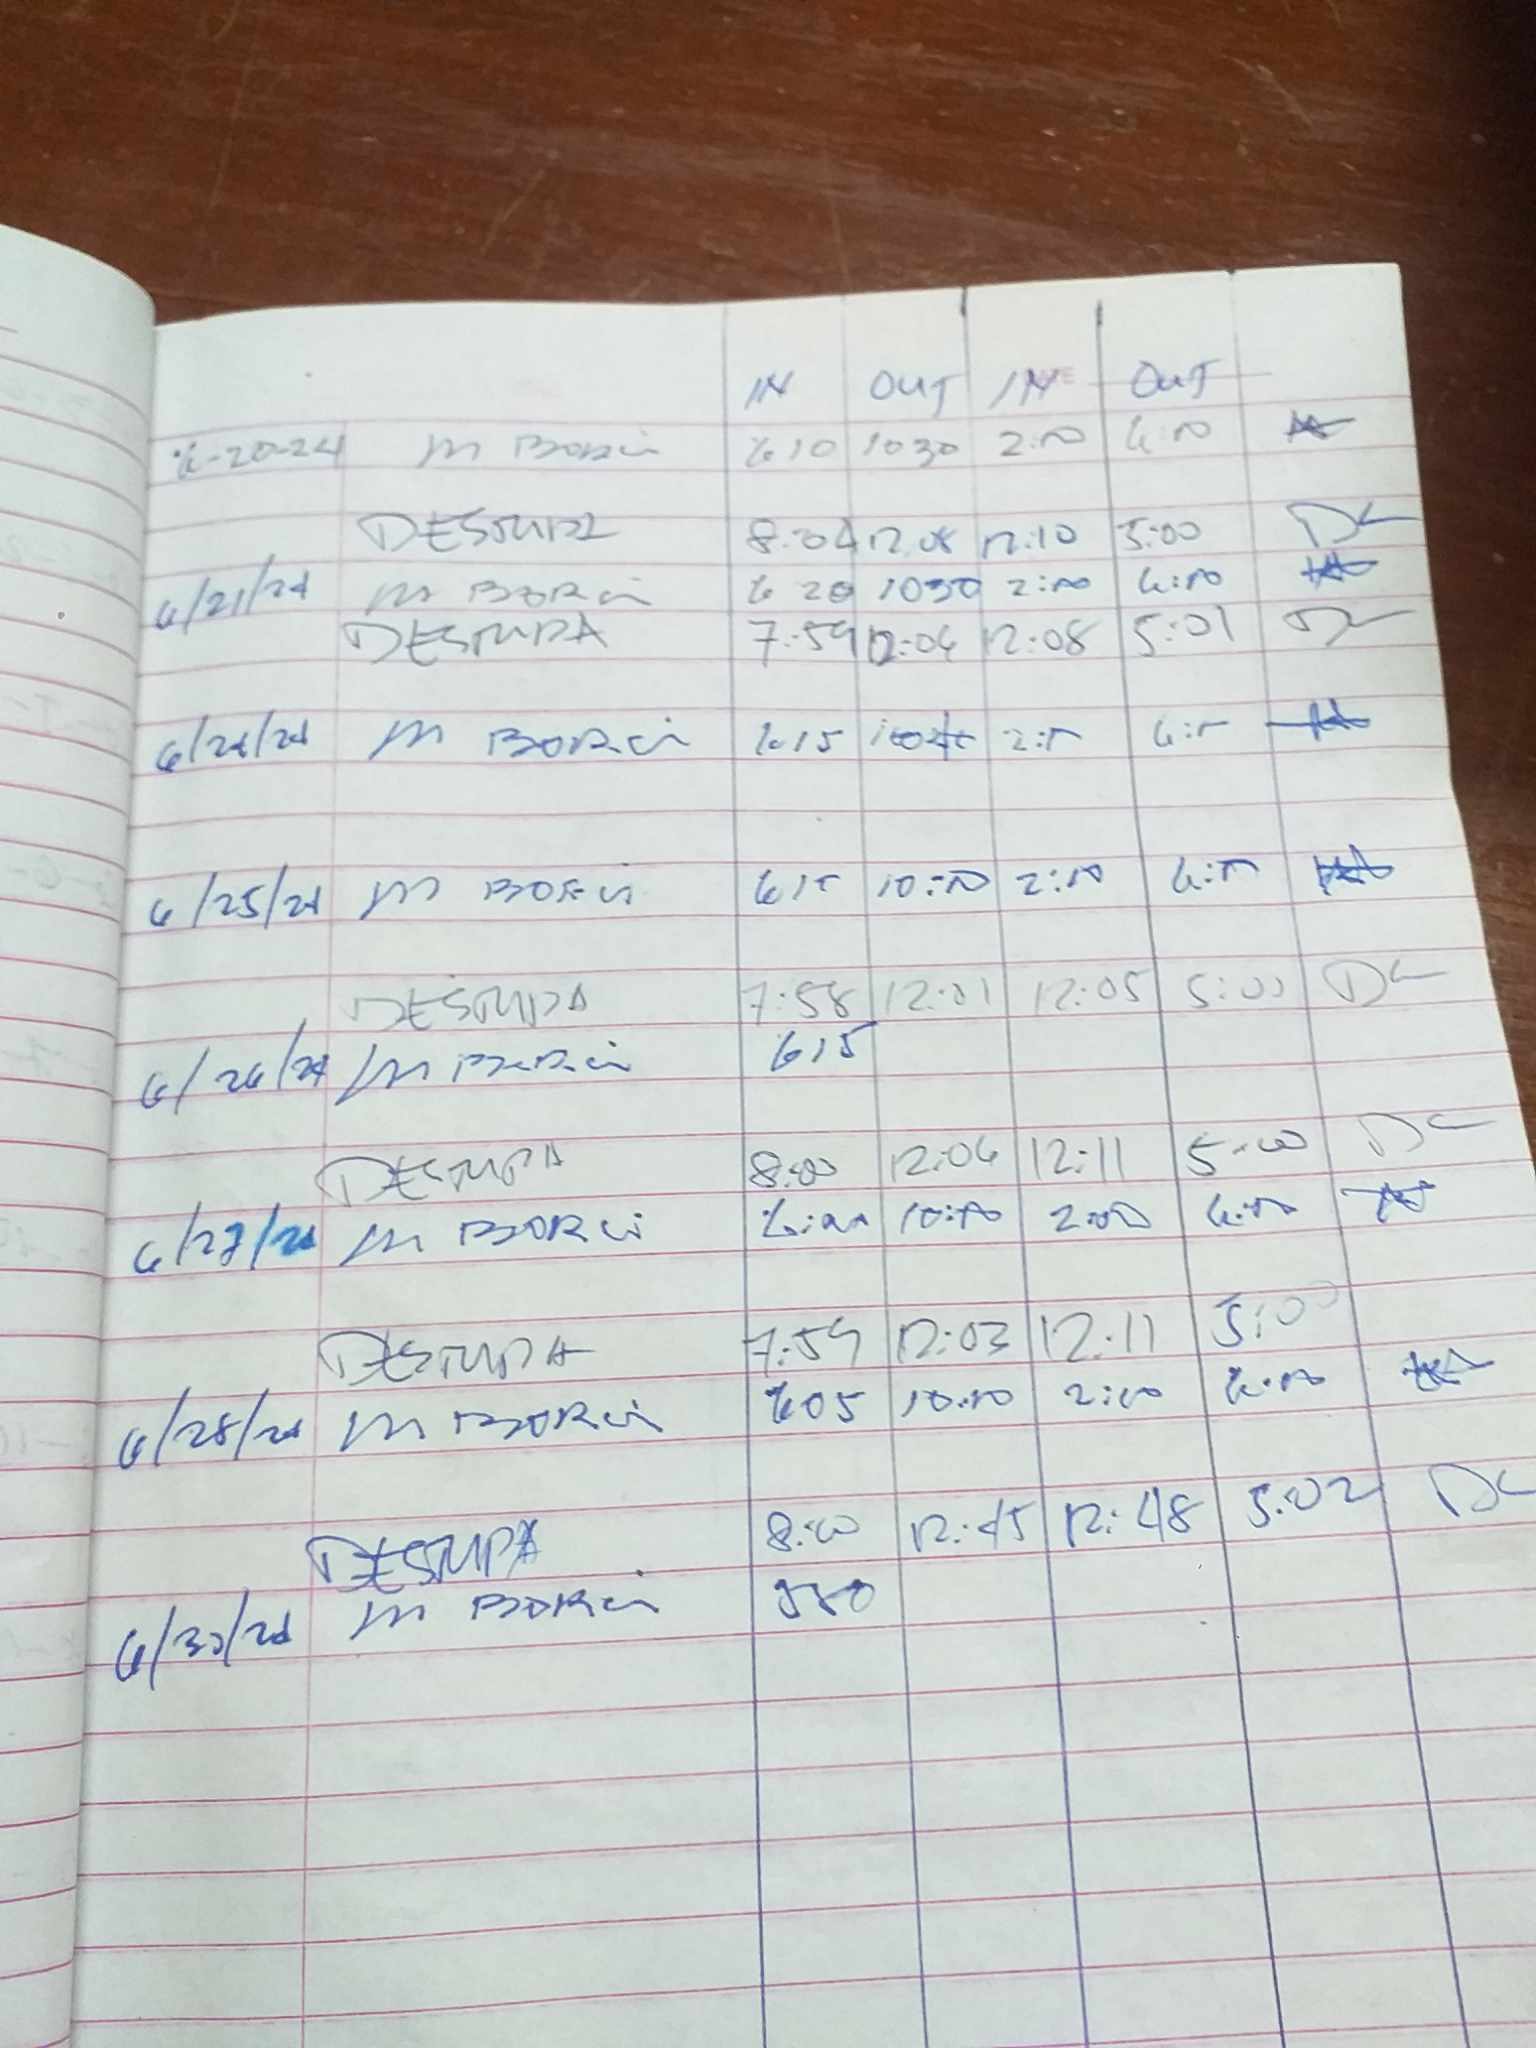 IN OUT IN OUT
6-20-24 M Borci 610 1030 2:00 6:00
DESTUPA 8:04 12:08 12:10 5:00 DC
6/21/24 M Borci 620 1030 2:00 6:00
DESTUPA 7:59 12:06 12:08 5:01 DC
6/24/24 M BORCi 615
6/25/24 M BORCi 615 10:00 2:00 6:00
DESTUPA 7:58 12:01 12:05 5:00 DC
6/26/24 M BORCi 615
DESTUPA 8:00 12:06 12:11 5:00 DC
6/27/24 M BORCi 6:00 10:00 2:00 6:00
DESTUPA 7:59 12:03 12:11 5:00
6/28/24 M BORCi 605 10:00 2:00 6:00
DESTUPA 8:00 12:45 12:48 5:02 DC
6/30/24 M BORCi